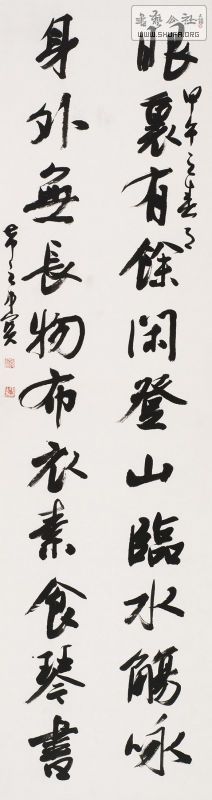 書藝公社
WWW.SHUFA.ORG
甲午之春月
眼裏有餘閑登山臨水觴咏
身外無長物布衣素食琴書